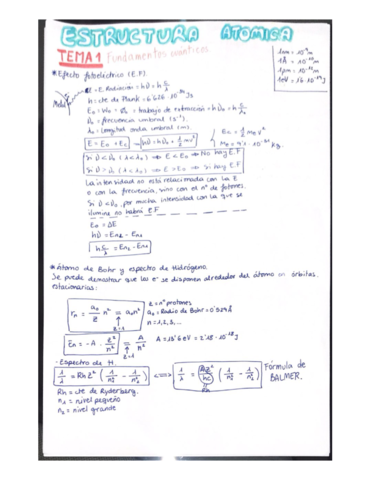 ESTRUCTURA ATOMICA
TEMA 1 Fundamentos cuánticos
1nm = 10⁻⁹m
1Å = 10⁻¹⁰m
1pm = 10⁻¹²m
1eV = 1'6·10⁻¹⁹J
* Efecto fotoeléctrico (E.F.)
E = E Radiación = hν = h c/λ
h = cte de Plank = 6'626·10⁻³⁴ Js
Metal
E₀ = W₀ = Φ₀ = trabajo de extracción = hν₀ = h c/λ₀
ν₀ = frecuencia umbral (s⁻¹).
λ₀ = Longitud onda umbral (m).
Ec = 1/2 Me v²
Me = 9'1·10⁻³¹ kg.
E = E₀ + Ec → hν = hν₀ + 1/2 mv²
Si ν < ν₀ (λ < λ₀) ⇒ E < E₀ ⇒ No hay E.F
Si ν > ν₀ (λ > λ₀) ⇒ E > E₀ ⇒ Si hay E.F
La intensidad no está relacionada con la E
o con la frecuencia, sino con el nº de fotones.
Si ν < ν₀, por mucha intensidad con la que se
ilumine no habrá E.F
E₀ = ΔE
hν = En₂ - En₁
h c/λ = En₂ - En₁
* Átomo de Bohr y espectro de Hidrógeno.
Se puede demostrar que los e⁻ se disponen alrededor del átomo en órbitas
estacionarias:
rₙ = a₀/Z n² = a₀n²
Z=1
Z = nº protones
a₀ = Radio de Bohr = 0'529Å
n = 1, 2, 3, ...
Eₙ = -A · Z²/n² = A/n²
Z=1
A = 13'6 eV = 2'18·10⁻¹⁸ J
- Espectro de H.
1/λ = Rh Z² (1/n₁² - 1/n₂²) ⟺ 1/λ = AZ²/hc (1/n₁² - 1/n₂²)
Fórmula de
BALMER.
Rh
Rh = cte de Rydberg.
n₁ = nivel pequeño
n₂ = nivel grande